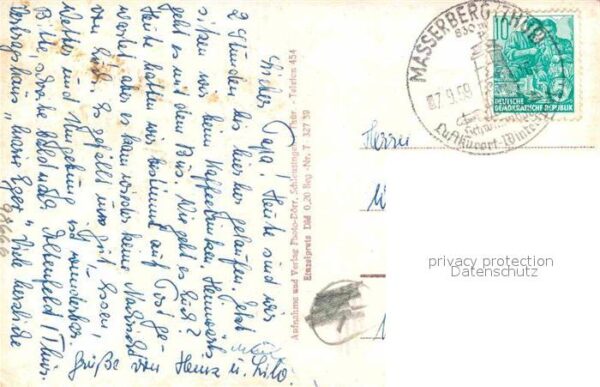 Lieber Papa! Heute sind wir
2 Stunden bis hierher gelaufen. Jetzt
sitzen wir beim Kaffeetrinken. Heimwärts
geht es mit dem Bus. Wie geht es Euch?
Heute hatten wir bestimmt auf Post ge-
wartet aber es kam wieder keine Nachricht
von Euch. Es gefällt uns gut. Essen,
Wetter und Umgebung ist wunderbar.
Bitte, schreibe
Altenfeld / Thür.
Vertragshaus Viele herzliche
Grüße von Heinz u. Lilo.
Aufnahme und Verlag Photo-Dörr, Schleusingen/Thür. - Telefon 454
Einzelpreis DM 0,20 Reg.-Nr. T 327/59
MASSERBERG (THÜR)
830 m
-7.9.59
Luftkurort - Winter
10
DEUTSCHE
DEMOKRATISCHE REPUBLIK
Herrn
privacy protection
Datenschutz